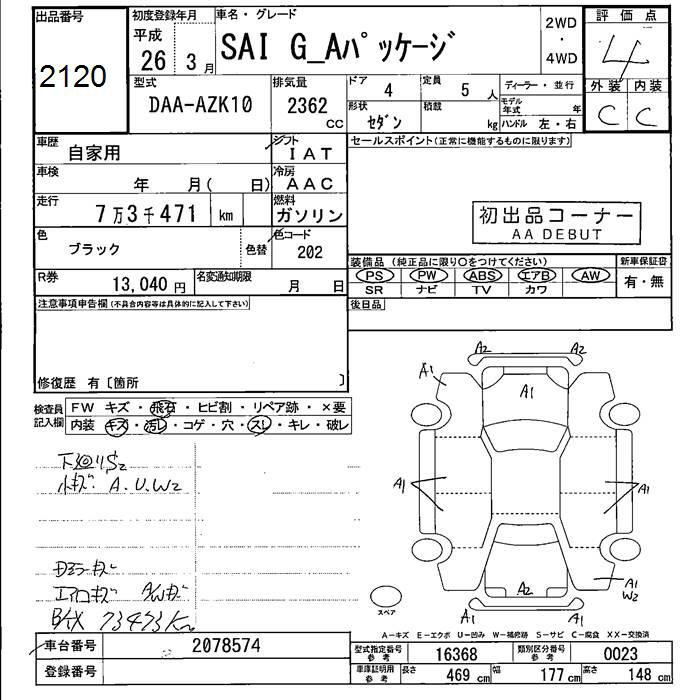 出品番号 初度登録年月 車名・グレード 評価点
2120 平成 26年 3月 SAI G_Aパッケージ 2WD・4WD 4
型式 排気量 ドア 4 定員 5人 ディーラー・並行 外装 内装
DAA-AZK10 2362 CC 形状 セダン 積載 kg モデル年式 年 ハンドル 左・右 C C
車歴 自家用 シフト IAT セールスポイント(正常に機能するものに限ります)
車検 年 月( 日) 冷房 AAC
走行 7万3千471 km 燃料 ガソリン 初出品コーナー
AA DEBUT
色 ブラック 色替 色コード 202
装備品(純正品に限り○をつけてください) 新車保証書
R券 13,040円 名変通知期限 月 日 PS PW ABS エアB AW 有・無
SR ナビ TV カワ
注意事項申告欄(不具合内容等は具体的に記入して下さい) 後日品
修復歴 有〔箇所 〕
検査員記入欄 FW キズ・飛石・ヒビ割・リペア跡・×要
内装 キズ・汚し・コゲ・穴・スレ・キレ・破レ
A2 A2
A1 A1
A1 A1
A2
A1
W2
小キズ A.U.W2
エアロキズ AWキズ
73473Km
スペア
A-キズ E-エクボ U-凹み W-補修跡 S-サビ C-腐食 XX-交換済
車台番号 2078574 型式指定番号 参考 16368 類別区分番号 参考 0023
登録番号 車庫証明用 参考 長さ 469 cm 幅 177 cm 高さ 148 cm